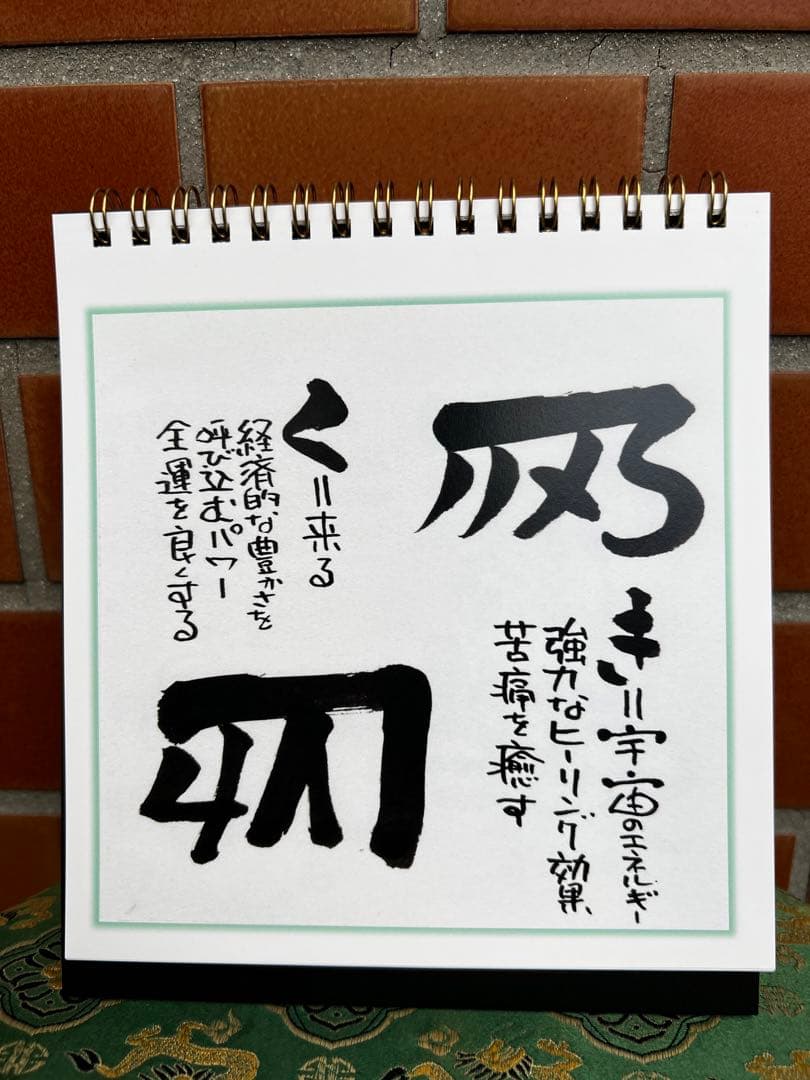 き=宇宙のエネルギー
強力なヒーリング効果、
苦痛を癒す
く=来る
経済的な豊かさを
呼び込むパワー
全運を良くする